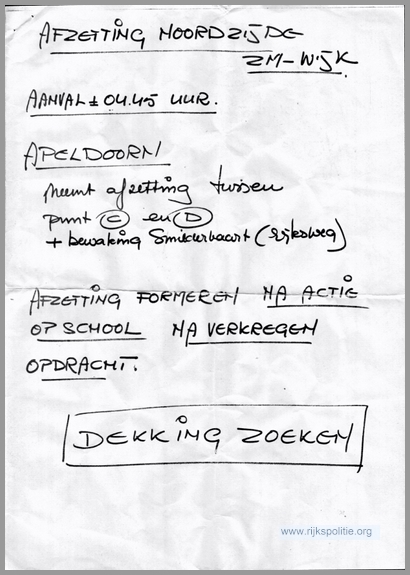 AFZETTING NOORDZIJDE
ZM-WIJK.
AANVAL ± 04.45 UUR.
APELDOORN
neemt afzetting tussen
punt C en D
+ bewaking Smildervaart (rijksweg)
AFZETTING FORMEREN NA ACTIE
OP SCHOOL NA VERKREGEN
OPDRACHT.
DEKKING ZOEKEN
www.rijkspolitie.org